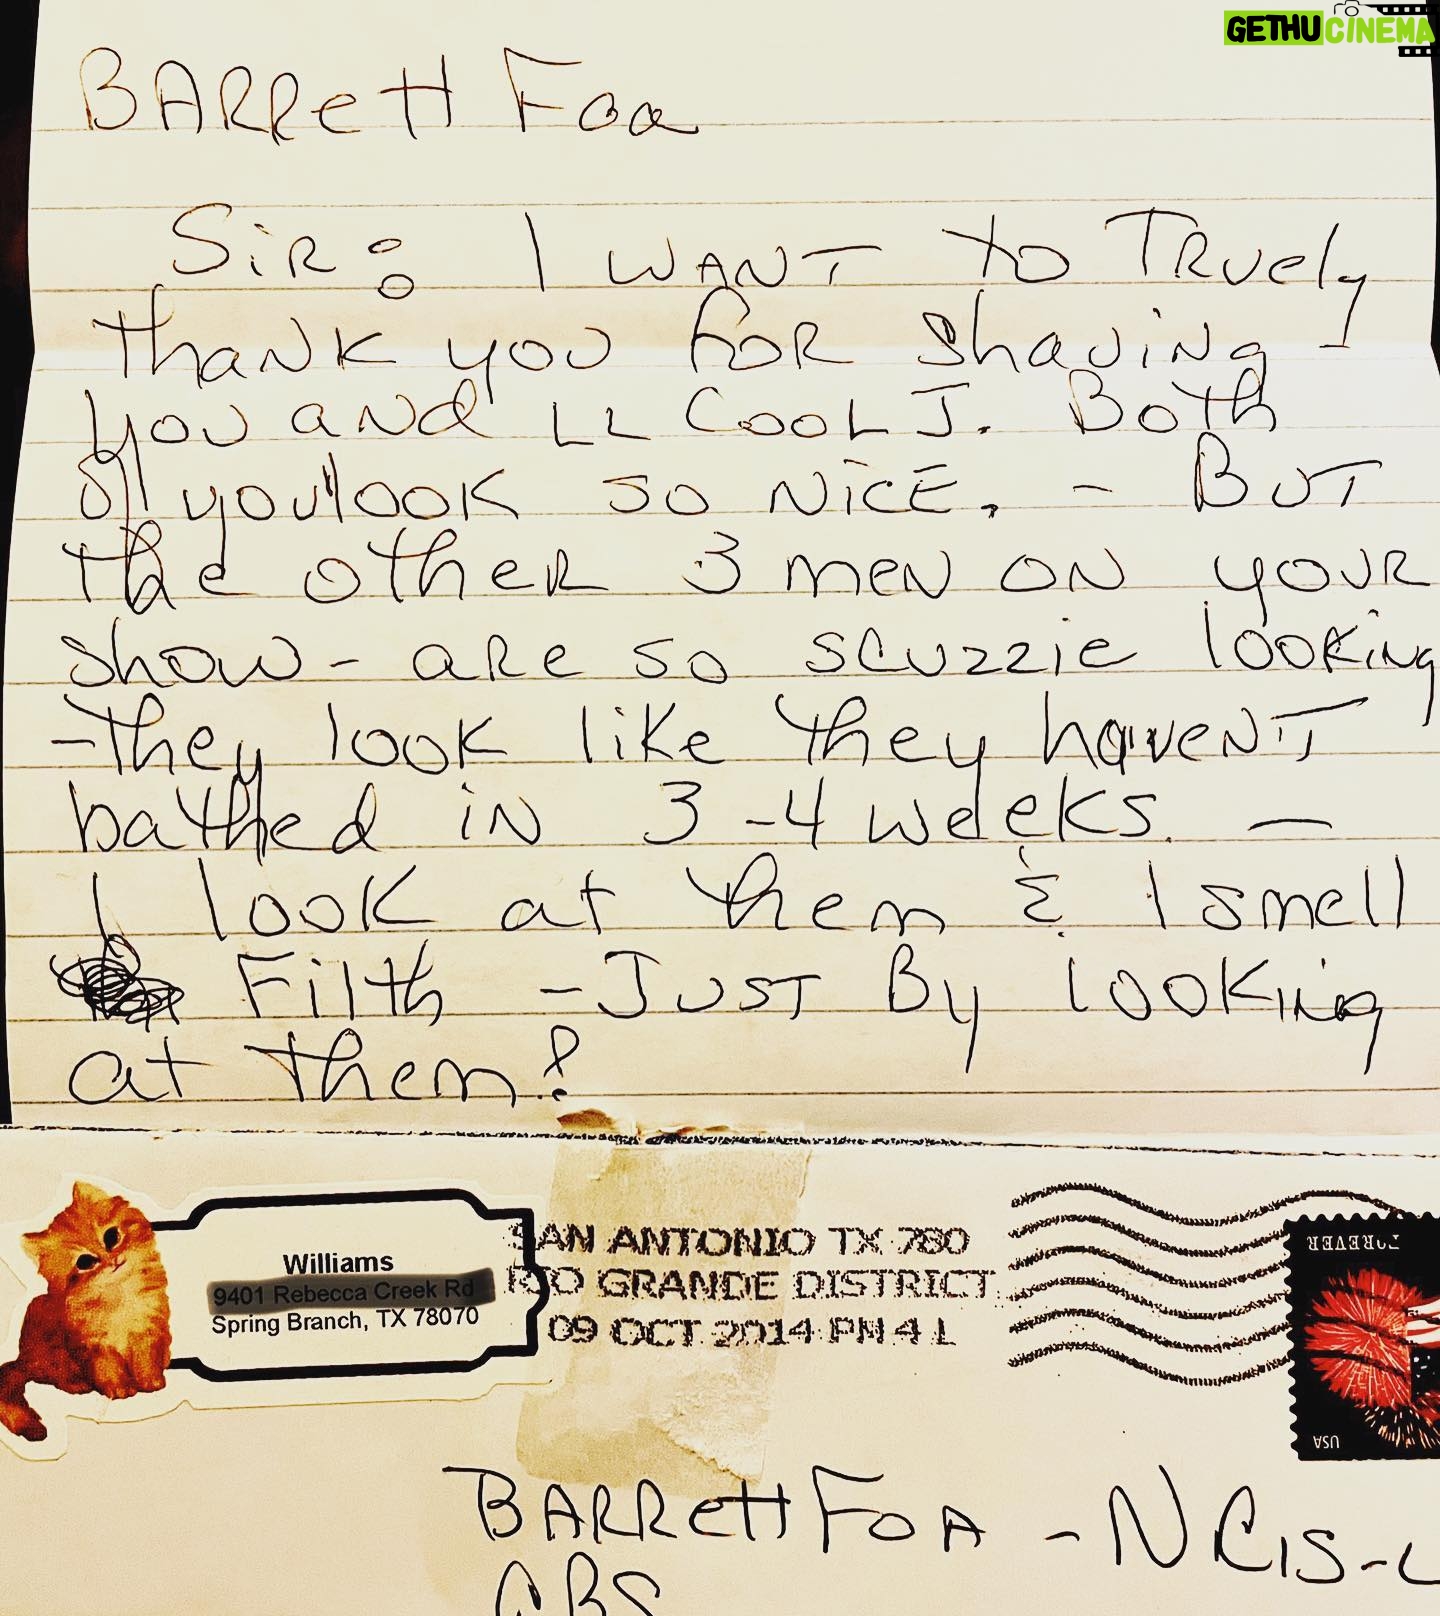 GETHUCINEMA
BARRett Foa
SiR: I WANT to TRuely
thank you FOR shaving -
you and LL COOL J. Both
of you look so NiCE. - BUT
the otheR 3 men ON youR
show - aRe so scuzzie looking
- they look like they haven't
bathed iN 3-4 weeks. -
I look at them & I smell
Filth - JUST By looking
at them!
Williams
Spring Branch, TX 78070
SAN ANTONIO TX 780
RIO GRANDE DISTRICT
09 OCT 2014 PM 4 L
FOREVER
USA
BARRett FOA - NCIS-L
CBS